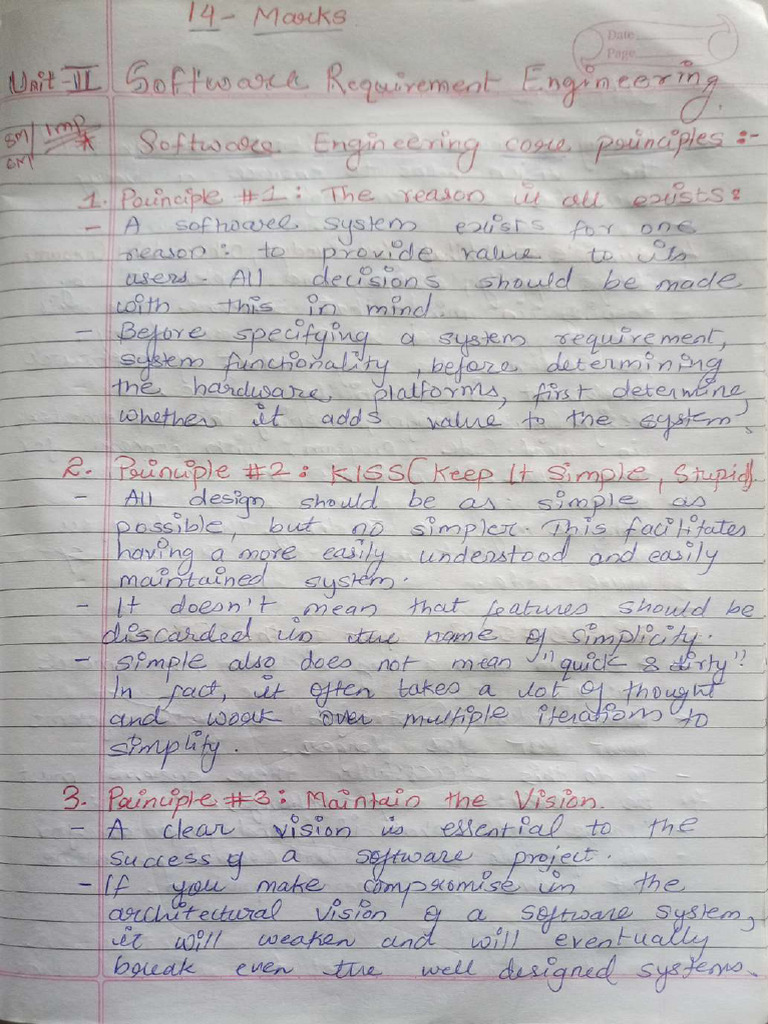 14 - Marks
Date
Page
Unit-II Software Requirement Engineering.
8M/ Imp
6M
Software Engineering core principles :-
1. Principle #1: The reason it all exists:
- A software system exists for one
reason: to provide value to its
users. All decisions should be made
with this in mind.
- Before specifying a system requirement,
system functionality, before determining
the hardware platforms, first determine,
whether it adds value to the system.
2. Principle #2: KISS (Keep It Simple, Stupid).
- All design should be as simple as
possible, but no simpler. This facilitates
having a more easily understood and easily
maintained system.
- It doesn't mean that features should be
discarded in the name of simplicity.
- Simple also does not mean "quick & dirty".
In fact, it often takes a lot of thought
and work over multiple iterations to
simplify.
3. Principle #3: Maintain the Vision.
- A clear vision is essential to the
success of a software project.
- If you make compromise in the
architectural vision of a software system,
it will weaken and will eventually
break even the well designed systems.